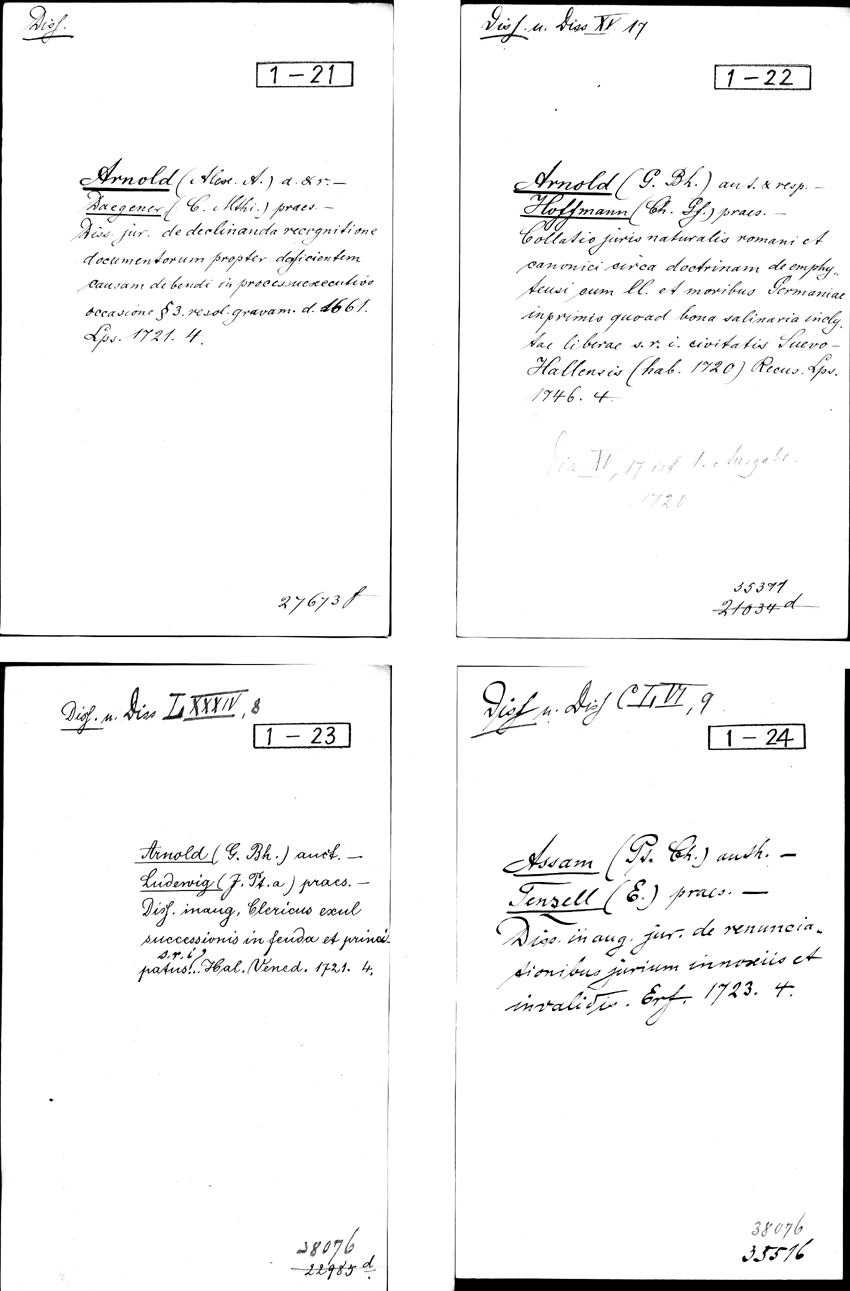 Diss.
1 – 21
Arnold (Alex. A.) a. & r. —
Daegener (C. Mthi.) praes. —
Diss. jur. de declinanda recognitione
documentorum propter deficientem
causam debendi in processu executivo
occasione § 3. resol. gravam. d. 1661.
Lps. 1721. 4.
27673 f
Diss. u. Diss XV. 17
1 – 22
Arnold (G. Bh.) aut. & resp. —
Hoffmann (Ch. Gf.) praes. —
Collatio juris naturalis romani et
canonici circa doctrinam de emphy-
teusi cum ll. et moribus Germaniae
inprimis quoad bona salinaria incly-
tae liberae s. r. i. civitatis Suevo-
Hallensis (hab. 1720) Recus. Lps.
1746. 4.
Diss XV, 17 ist 1. Ausgabe.
1720
35377
21034 d
Diss. u. Diss LXXXIV, 8
1 – 23
Arnold (G. Bh.) auct. —
Ludewig (J. Pt. a) praes. —
Diss. inaug. Clericus exul
successionis in feuda et princi-
s. r. i.
patus... Hal. Vened. 1721. 4.
38076
22985 d.
Diss u. Diss CLVI, 9
1 – 24
Assam (Ps. Ch.) auth. —
Tenzell (E.) praes. —
Diss. inaug. jur. de renuncia-
tionibus jurium innoxiis et
invalidis. Erf. 1723. 4.
38076
35516